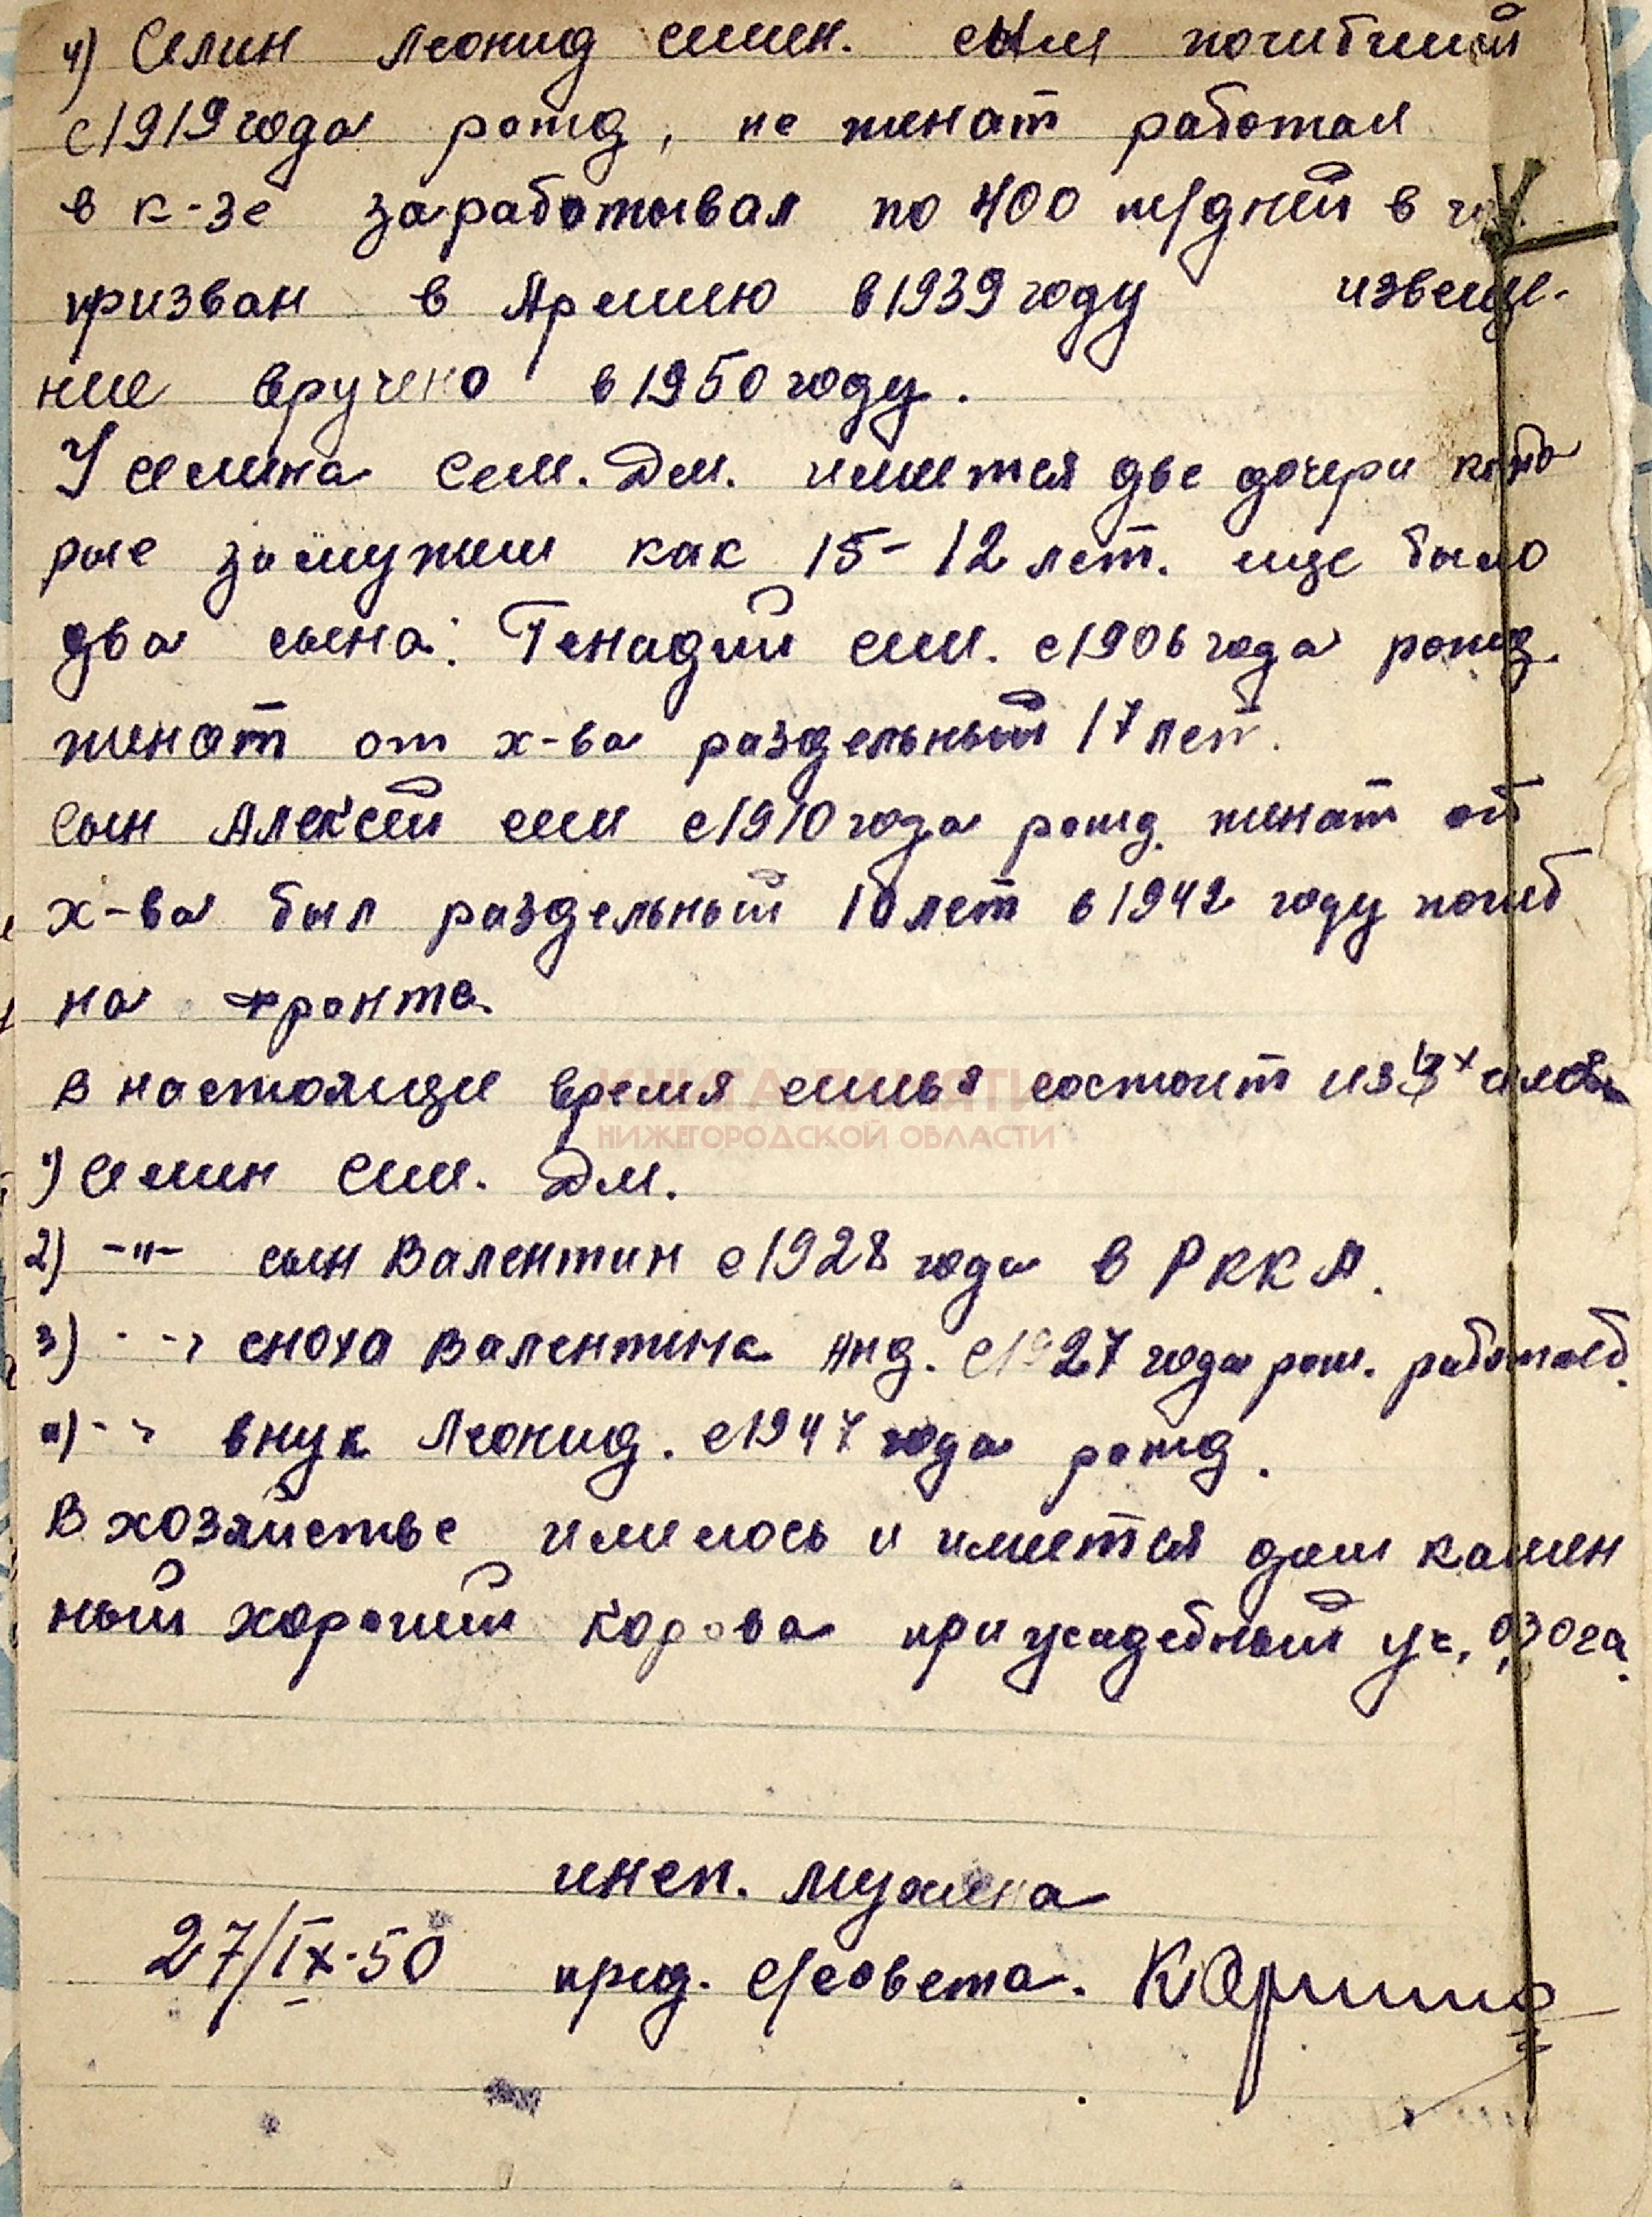 4) Селин Леонид семен. сын погибший
с 1919 года рожд, не женат работал
в к-зе зарабатывал по 400 т/дней в
призван в Армию в 1939 году извеще-
ние вручено в 1950 году.
У Селина Сем. Дм. имеется две дочери кото
рые замужем как 15-12 лет. еще было
два сына: Генадий сем. с 1906 года рожд.
женат от х-ва раздельный 17 лет.
Сын Алексей сем с 1910 года рожд. женат от
х-ва был раздельный 10 лет в 1942 году погиб
на фронте.
В настоящее время семья состоит из х челов
КНИГА ПАМЯТИ
НИЖЕГОРОДСКОЙ ОБЛАСТИ
1) Селин Сем. Дм.
2) -"- сын Валентин с 1928 года в РККА.
3) -"- сноха Валентина Анд. с 1927 года рож.
4) -"- внук Леонид. с 1947 года рожд.
В хозяйстве имелось и имеется дом камен
ный хороший корова приусадебный уч. 0,30 га.
инсп.
27/IX-50 пред. с/совета.